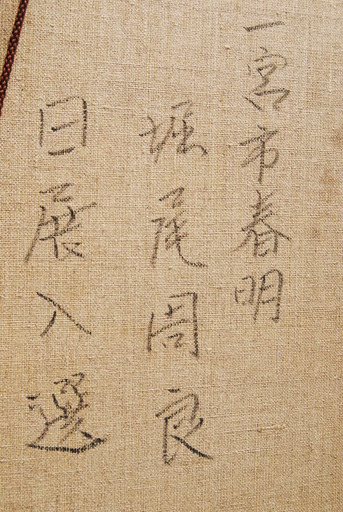 一宮市春明
堀尾周良
日展入選